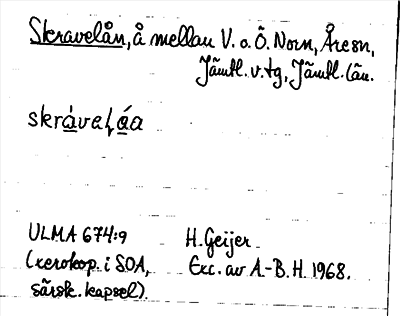 Skravelån, å mellan V. o. Ö. Norn, Åresn,
Jämtl. v. tg, Jämtl. län.
skrávaḷá̱a
ULMA 674:9
(xerokop. i SOA,
särsk. kapsel).
H. Geijer
Exc. av A.-B. H. 1968.